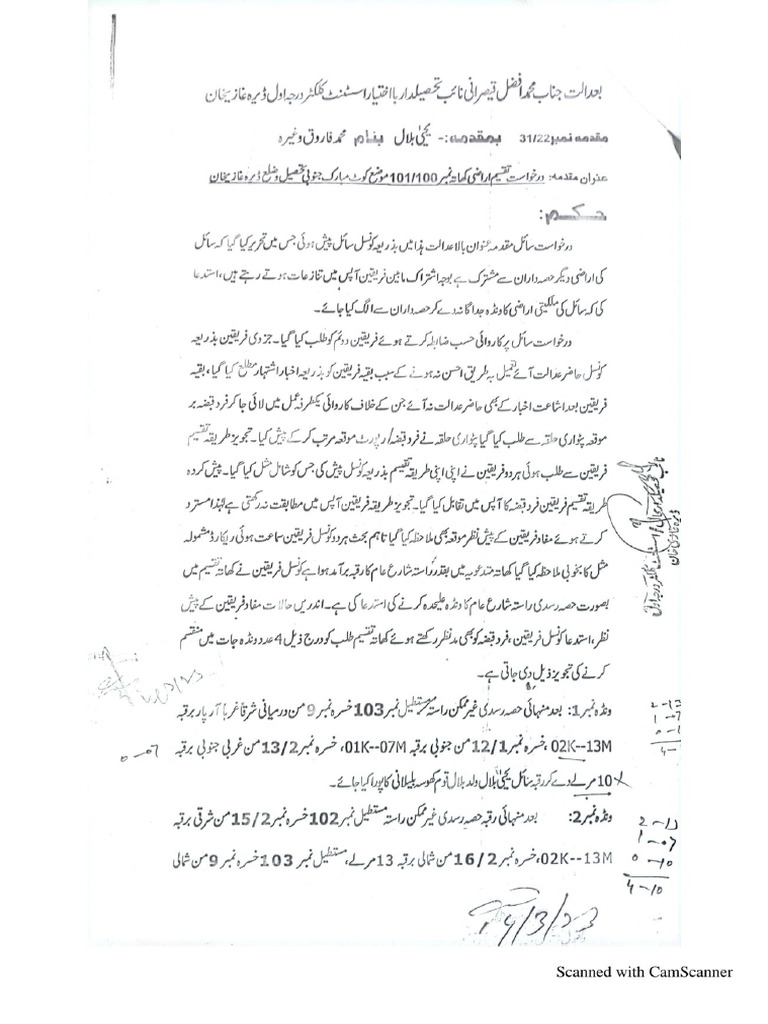 بعدالت جناب محمد افضل قیصرانی نائب تحصیلدار بااختیار اسسٹنٹ کلکٹر درجہ اول ڈیرہ غازیخان
مقدمہ نمبر 31/22 بمقدمہ:- یحییٰ بلال بنام محمد فاروق وغیرہ
عنوان مقدمہ: درخواست تقسیم اراضی کھاتہ نمبر 101/100 موضع کوٹ مبارک جنوبی تحصیل وضلع ڈیرہ غازیخان
حکم:
درخواست سائل مقدمہ عنوان بالا عدالت ہذا میں بذریعہ کونسل سائل پیش ہوئی جس میں تحریر کیا گیا کہ سائل
کی اراضی دیگر حصہ داران سے مشترک ہے بوجہ اشتراک مابین فریقین آپس میں تنازعات ہوتے رہتے ہیں، استدعا
کی کہ سائل کی ملکیتی اراضی کا ونڈہ جداگانہ دے کر حصہ داران سے الگ کیا جائے۔
درخواست سائل پر کاروائی حسب ضابطہ کرتے ہوئے فریقین دوئم کو طلب کیا گیا۔ جزوی فریقین بذریعہ
کونسل حاضر عدالت آئے تعمیل بہ طریق احسن نہ ہونے کے سبب بقیہ فریقین کو بذریعہ اخبار اشتہار مطلع کیا گیا، بقیہ
فریقین بعد اشاعت اخبار کے بھی حاضر عدالت نہ آئے جن کے خلاف کاروائی یکطرفہ عمل میں لائی جا کر فرد قبضہ بر
موقعہ پٹواری حلقہ سے طلب کیا گیا پٹواری حلقہ نے فرد قبضہ/رپورٹ موقعہ مرتب کر کے پیش کیا۔ تجویز طریقہ تقسیم
فریقین سے طلب ہوئی ہر دو فریقین نے اپنی اپنی طریقہ تقسیم بذریعہ کونسل پیش کی جس کو شامل مثل کیا گیا۔ پیش کردہ
طریقہ تقسیم فریقین فرد قبضہ کا آپس میں تقابل کیا گیا۔ تجویز طریقہ فریقین آپس میں مطابقت نہ رکھتی ہے لہٰذا مسترد
کرتے ہوئے مفاد فریقین کے پیش نظر موقعہ بھی ملاحظہ کیا گیا تاہم بحث ہر دو کونسل فریقین سماعت ہوئی ریکارڈ مشمولہ
مثل کا بخوبی ملاحظہ کیا گیا کھاتہ متدعویہ میں بقدر راستہ شارع عام کا رقبہ برآمد ہوا ہے کونسل فریقین نے کھاتہ تقسیم میں
بصورت حصہ رسدی راستہ شارع عام کا ونڈہ علیحدہ کرنے کی استدعا کی ہے۔ اندریں حالات مفاد فریقین کے پیش
نظر، استدعا کونسل فریقین، فرد قبضہ کو بھی مدنظر رکھتے ہوئے کھاتہ تقسیم طلب کو درج ذیل 4 عدد ونڈہ جات میں منقسم
کرنے کی تجویز ذیل دی جاتی ہے۔
ونڈہ نمبر 1: بعد منہائی حصہ رسدی غیر ممکن راستہ مستطیل نمبر 103 خسرہ نمبر 9 من درمیانی شرقاً غرباً آر پار برقبہ
02K--13M، خسرہ نمبر 12/1 من جنوبی برقبہ 01K--07M، خسرہ نمبر 13/2 من غربی جنوبی برقبہ
10 مرلے دے کر رقبہ سائل یحییٰ بلال ولد بلال قوم کھوسہ بلیلانی کا پورا کیا جائے۔
ونڈہ نمبر 2: بعد منہائی رقبہ حصہ رسدی غیر ممکن راستہ مستطیل نمبر 102 خسرہ نمبر 15/2 من شرقی برقبہ
02K--13M، خسرہ نمبر 16/2 من شمالی برقبہ 13 مرلے، مستطیل نمبر 103 خسرہ نمبر 9 من شمالی
2-13
1-07
0-10
4-10
0-07
14/3/23
Scanned with CamScanner